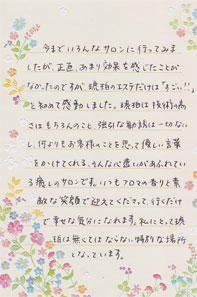 今までいろんなサロンに行ってみま
したが、正直、あまり効果を感じたことが
なかったのですが、琥珀のエステだけは「すごい!!」
と初めて感動しました。琥珀は技術の高
さはもちろんのこと、強引な勧誘は一切ない
し、何よりもお客様のことを思って優しい言葉
をかけてくれる、そんな心遣いがあふれてい
る癒しのサロンです。いつもアロマの香りと素
敵な笑顔で迎えてくださって、行くだけ
で幸せな気分になれます。私にとって琥
珀は無くてはならない特別な場所
となっています。